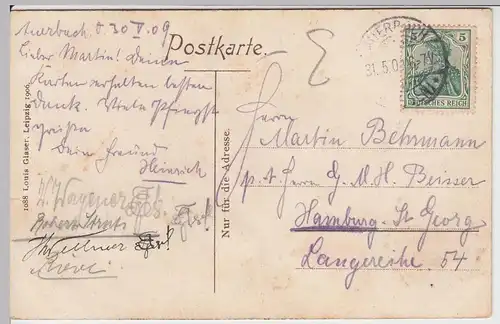 Auerbach d. 30 V. 09
Lieber Martin! Deine
Karten erhalten besten
Dank. Viele Pfingst
grüsse
Dein Freund
Heinrich
W. Wagner
Postkarte.
AUERBACH
31.5.09
5
DEUTSCHES REICH
Herrn
Martin Behrmann
p. A. Herrn G. M. H. Beisser
Hamburg-St Georg
Langereihe 54
Nur für die Adresse.
1088 Louis Glaser, Leipzig 1906.